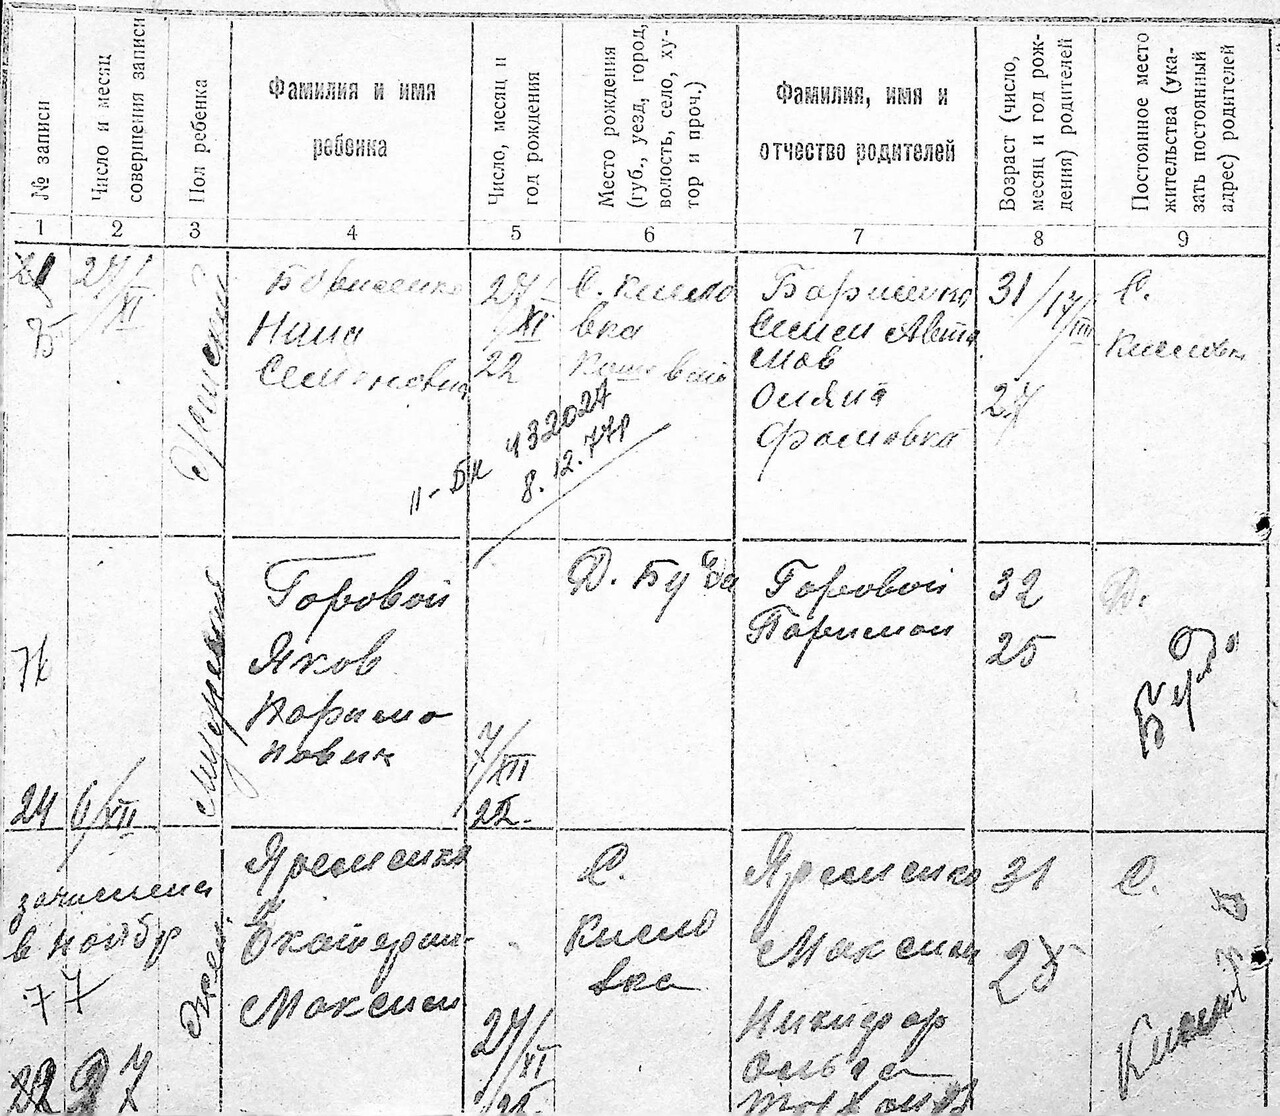 № записи
Число и месяц
совершения записи
Пол ребенка
Фамилия и имя
ребенка
Число, месяц и
год рождения
Место рождения
(губ., уезд, город,
волость, село, ху-
тор и проч.)
Фамилия, имя и
отчество родителей
Возраст (число,
месяц и год рож-
дения) родителей
Постоянное место
жительства (ука-
зать постоянный
адрес) родителей
1 2 3 4 5 6 7 8 9
27/XI
Женский
Борисенко
Нина
Семеновна
27/XI
22
С. Кисло
вка
Борисенко
Семен Авта
мов
Фомовна
31/17/III
27
С.
Кисловка
432027
8.12.77р
24
6/XII
Мужской
Горовой
Яков
Паримо
нович
7/XII
22.
Д. Буда
Горовой
Паримон
32
25
Д.
Буда
в ноябр
77
Жен
Яременко
Екатерин
Максим
27/XI
22
С.
Кисло
вка
Яременко
Максим
Никифор
Ольга
31
25
С.